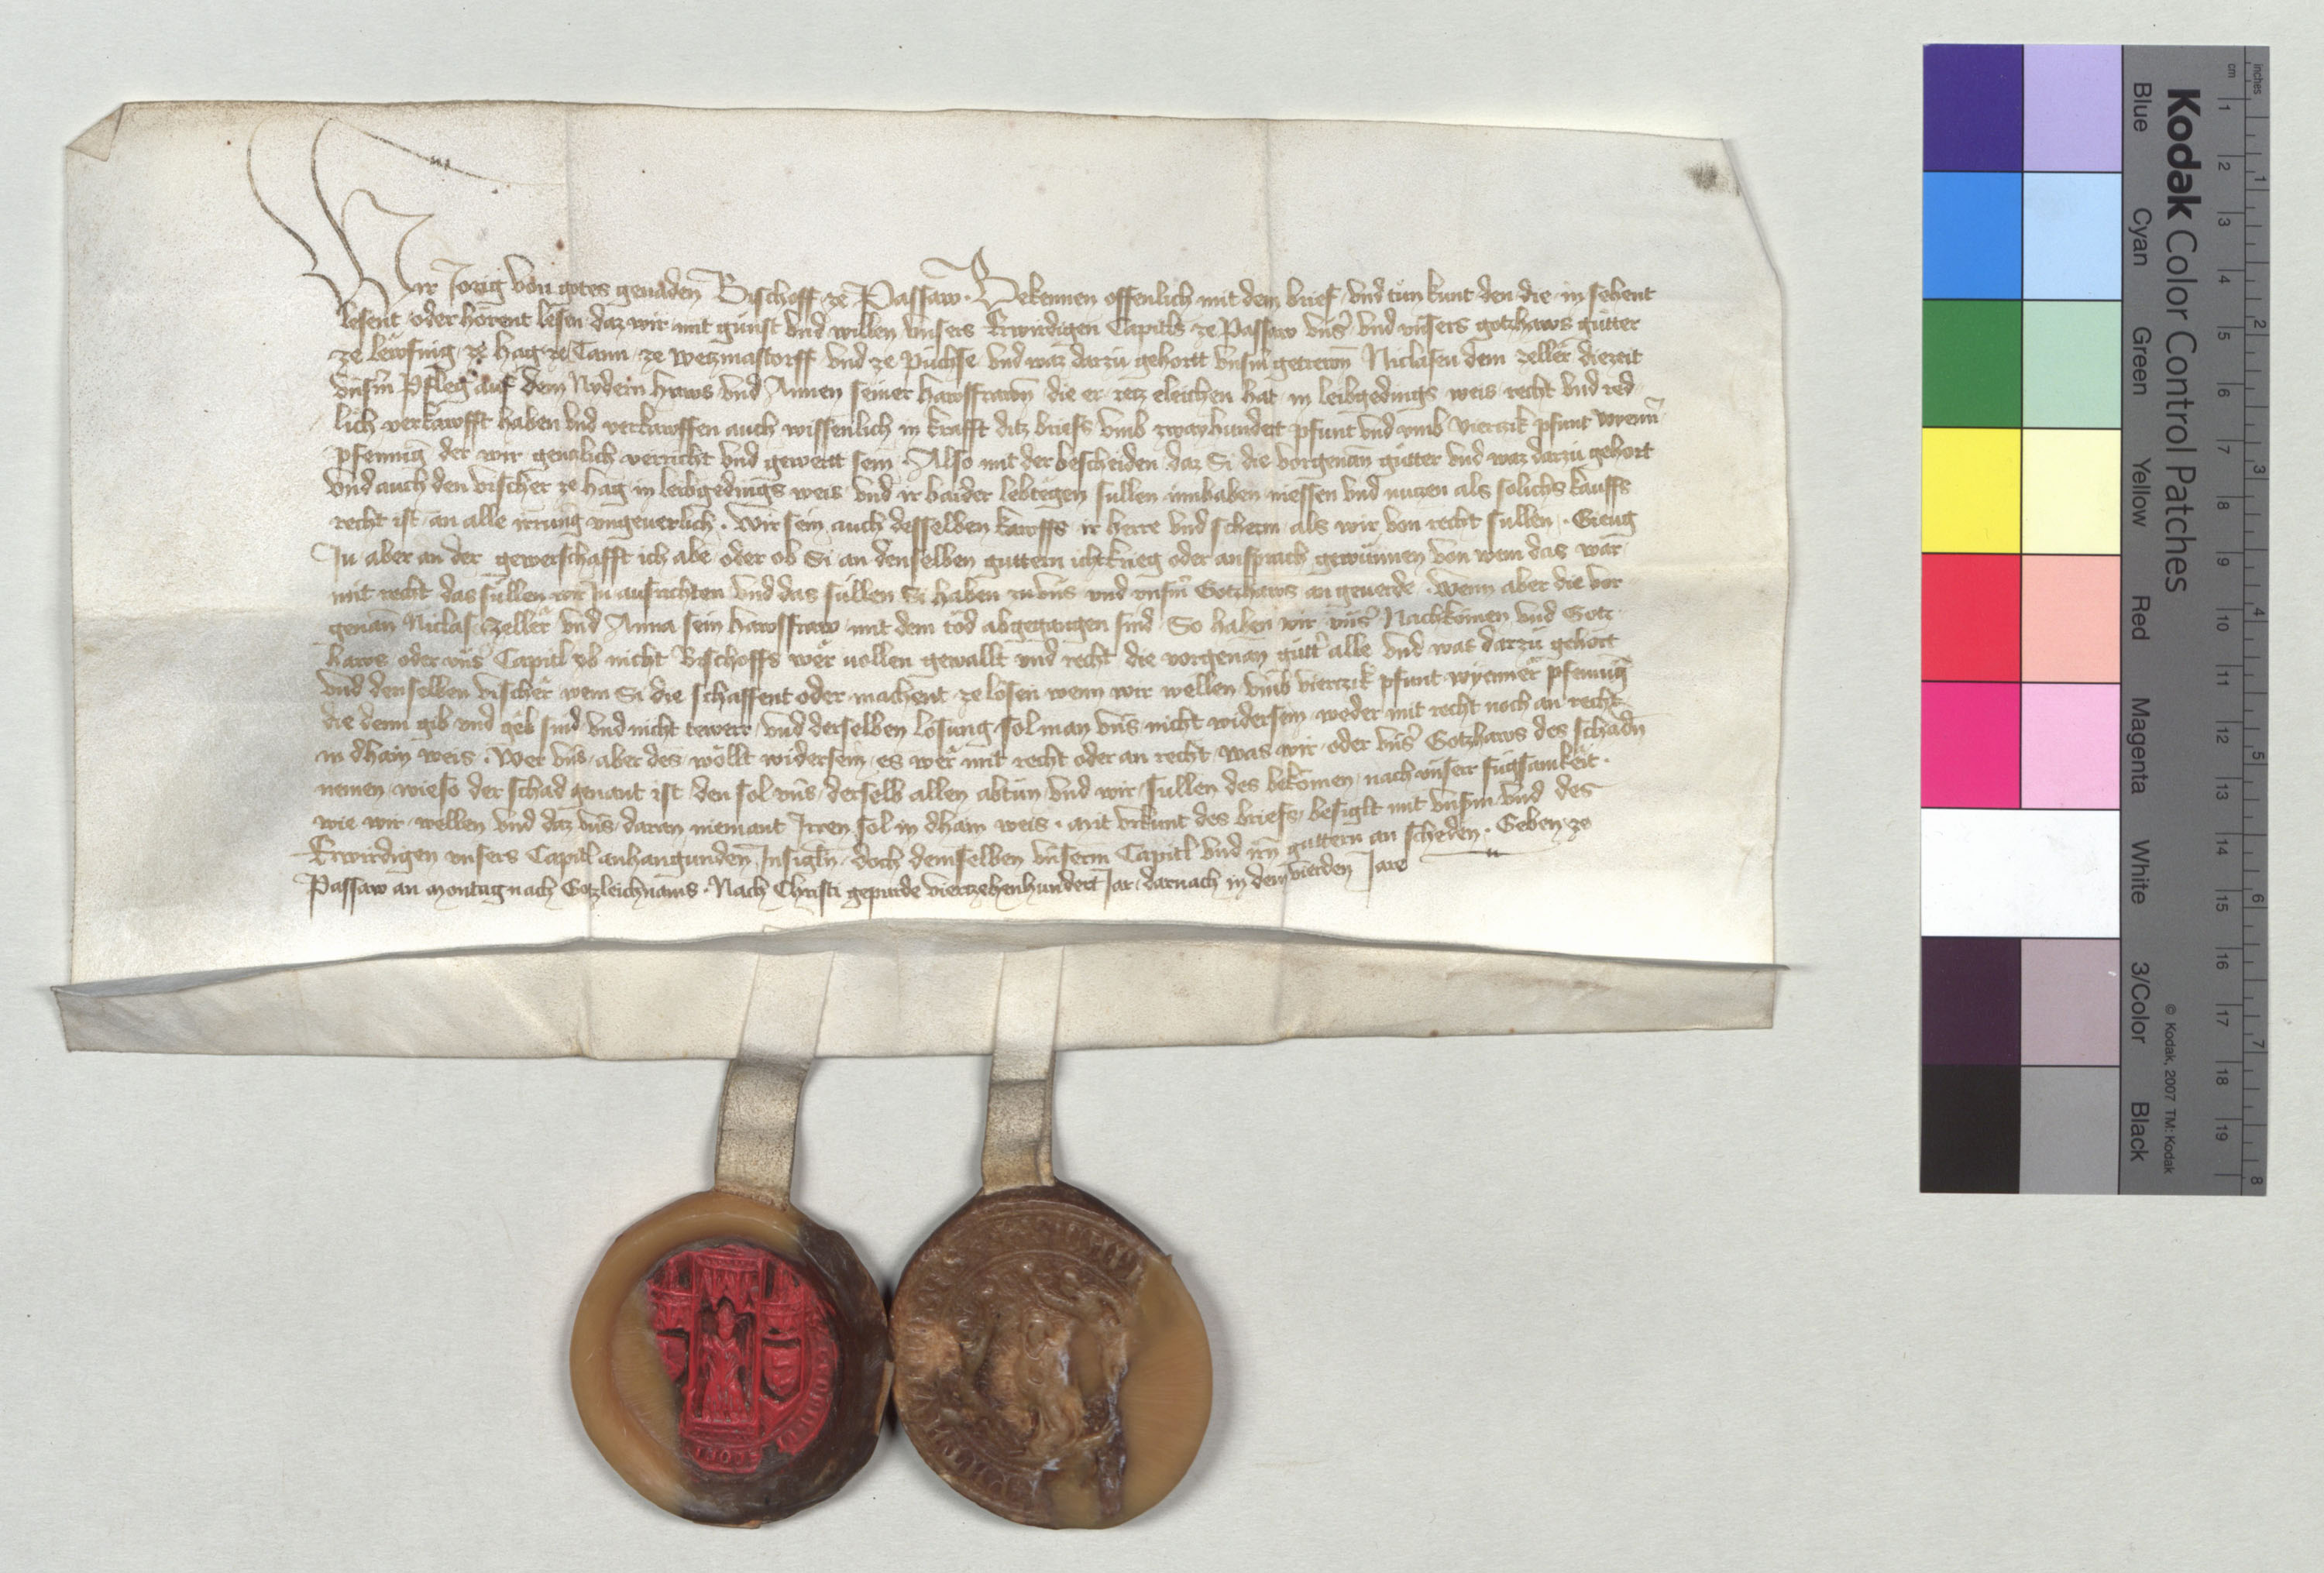 Wir Jorig von gotes genaden Bischoff ze Passaw. Bekennen offenlich mit dem brief vnd tun kunt den die in sehent
lesent oder horent lesen daz wir mit gunst vnd willen vnsers Erwirdigen Capitls ze Passaw vnsr vnd vnsers gotzhaws gutter
ze ze Hag ze Tann ze Wetzmastorff vnd ze Puchse vnd waz darzu gehortt vnserm getrewn Niclasen dem Zeller diezeit
vnserm Pfleger auf dem Nydern Haws vnd Annen seiner hawsfrawn die er yetz eleichen hat in leibgedings weis recht vnd red
lich verkawfft haben vnd verkawffen auch wissenlich in krafft ditz briefs vmb zwayhundert pfunt vnd vmb vierczik pfunt wyenner
pfennig der wir genczlich verricht vnd gewertt sein. Also mit der bescheiden daz Si die vorgenan gutter vnd waz darzu gehort
vnd auch den vischer ze Hag in leibgedings weis vnd ir baider lebtegen sullen innhaben niessen vnd nutzen als solichs kauffs
recht ist an alle irrung vngeuerlich. Wir sein auch desselben kawffs ir herre vnd scherm als wir von recht sullen. Gieng
In aber an der gewerschafft ich abe oder ob Si an denselben guttern icht krieg oder ansprach gewunnen von wem das war
mit recht das sullen wir In ausrichten vnd das sullen Si haben zu vns vnd vnserm Gotzhaws an geuerde. Wenn aber die vor
genan Niclas Zeller vnd Anna sein hawsfraw mit dem tod abgegangen sind So haben wir vnsr Nachkomen vnd Gotz
haws oder vnsr Capitl ob nicht Bischoffs wer vollen gewallt vnd recht die vorgenan gutter alle vnd was darzu gehort
vnd denselben vischer wem Si die schaffent oder machent ze losen wenn wir wellen vmb vierczik pfunt wyenner pfennig
die denn gib vnd geb sind vnd nicht tewrer vnd derselben losung sol man vns nicht widersein weder mit recht noch an recht
in dhain weis. Wer vns aber des wollt widersein es wer mit recht oder an recht was wir oder vnsr Gotzhaws des schadn
nemen wieso der schad genant ist den sol vns derselb allen abtun vnd wir sullen des bekomen nach vnserr fugsamkeit.
wie wir wellen vnd daz vns daran niemant Irren sol in dhain weis. mit vrkunt des briefs besiglt mit vnserm vnd des
Erwirdigen vnsers Capitl anhangunden Insigln doch demselben vnserm Capitl vnd irn guttern an scheden. Geben ze
Passaw an montag nach Gotzleichnams. Nach Christi gepurde vierzehenhundert Jar darnach in dem vierden Jare
Kodak Color Control Patches
Blue Cyan Green Yellow Red Magenta White 3/Color Black
inches 1 2 3 4 5 6 7 8
cm 1 2 3 4 5 6 7 8 9 10 11 12 13 14 15 16 17 18 19
© Kodak, 2007 TM: Kodak